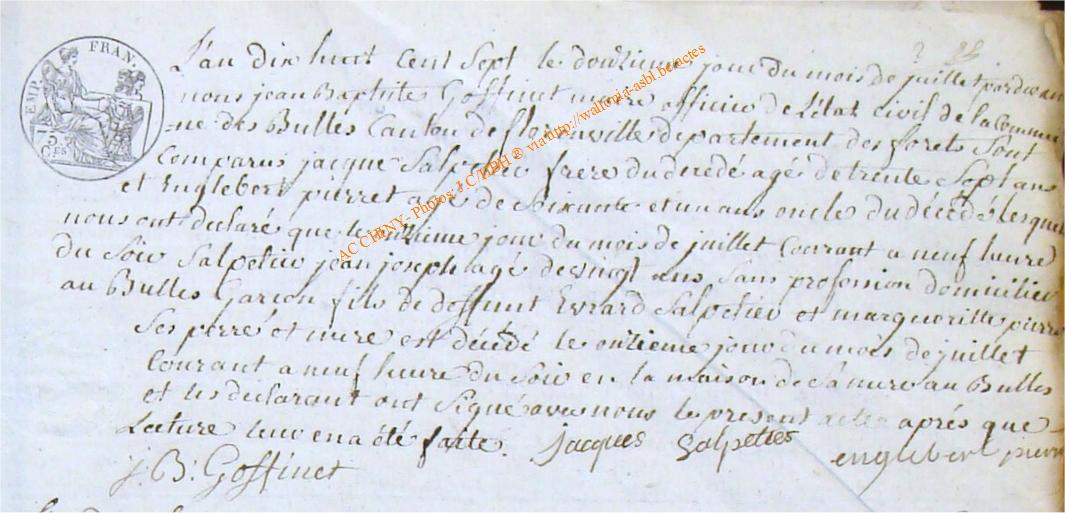 EMP. FRAN.
75
CES
L'an dix huit Cent Sept le douzieme jour du mois de juillet pardevant
nous jean Baptiste Goffinet maire officier de L'état Civil de la Commu
-ne des Bulles Canton de florenville departement des forets Sont
Comparus jacque Salpetier frere du decedé agé de trente Sept ans
et Englebert pierret agé de Soixante et un ans oncle du décédé lesquels
nous ont déclaré que le onzieme jour du mois de juillet Courant a neuf heure
du Soir Salpetier jean joseph agé de vingt ans Sans profession domicilier
au Bulles Garçon fils de deffunt Evrard Salpetier et margueritte pierre
Ses perre et mere est décédé le onzieme jour du mois de juillet
Courant a neuf heure du Soir en la maison de Sa mere au Bulles
et les declarant ont Signé avec nous le present acte aprés que
Lecture leur en a été faite. jacques Salpetier englebert pierret
j. B. Goffinet
ACCHENY- Photos: J.C MBH ® via http://wallonia-asbl.be/actes